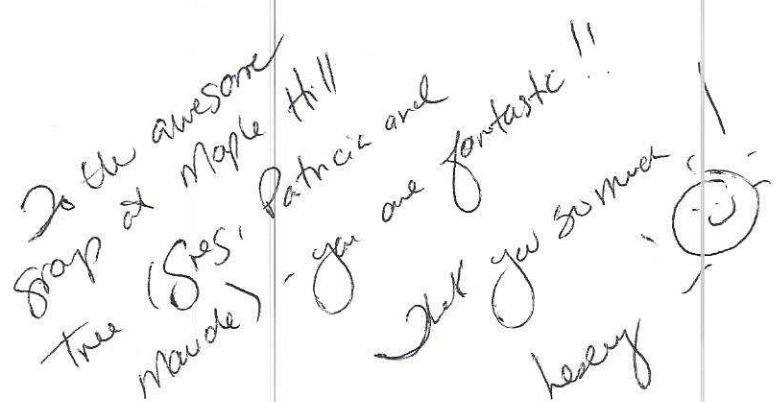 To the awesome
group at Maple Hill
Tree (Greg, Patricia and
Maude) - you are fantastic!!
Thank you so much!